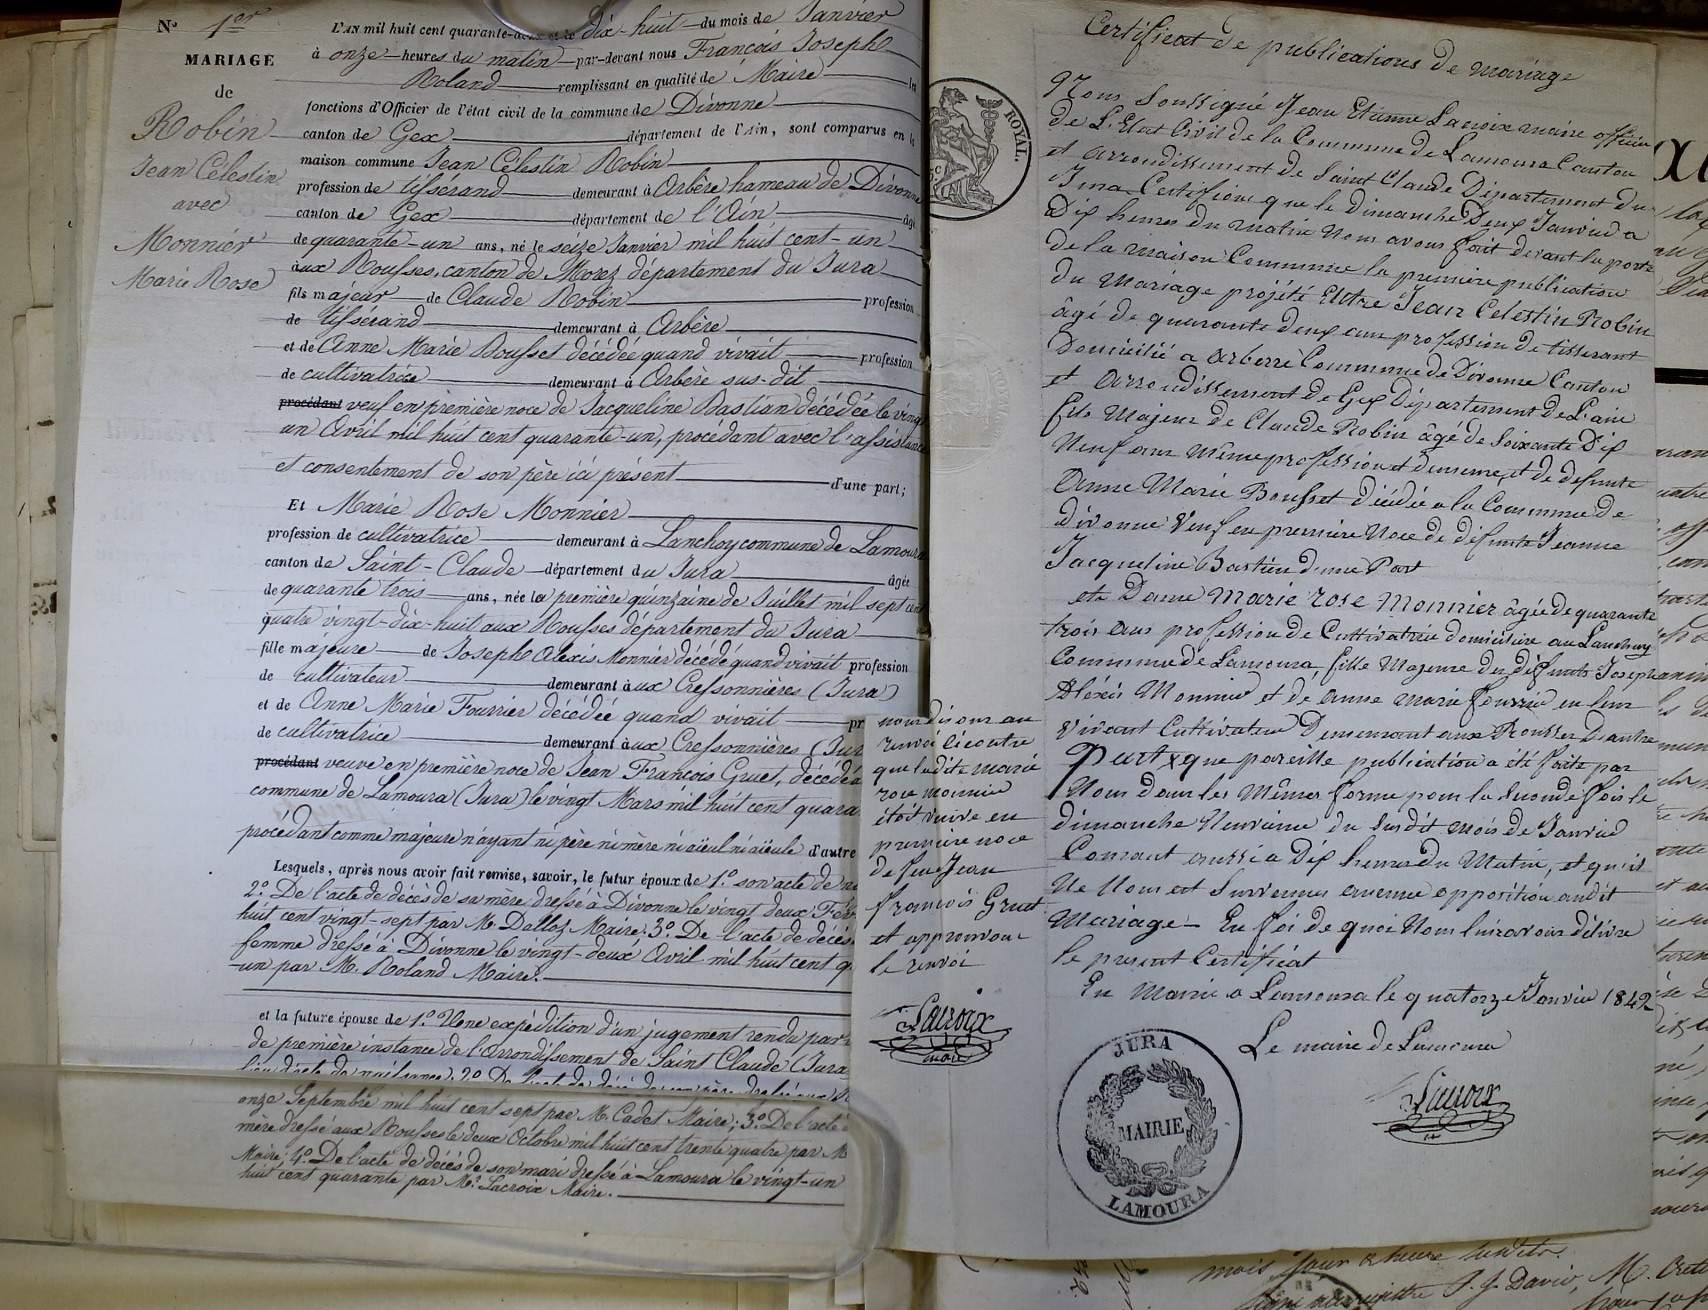 N° 1er
MARIAGE
de
Robin
Jean Célestin
avec
Monnier
Marie Rose
L'AN mil huit cent quarante-deux et le dix-huit du mois de Janvier
à onze heures du matin par-devant nous François Joseph
Roland remplissant en qualité de Maire les
fonctions d'Officier de l'état civil de la commune de Divonne
canton de Gex département de l'Ain, sont comparus en la
maison commune Jean Célestin Robin
profession de tissérand demeurant à Arbère hameau de Divonne
canton de Gex département de l'Ain âgé
de quarante-un ans, né le seize Janvier mil huit cent-un
aux Rousses, canton de Morez département du Jura
fils majeur de Claude Robin profession
de tissérand demeurant à Arbère
et de Anne Marie Bousset décédée quand vivait profession
de cultivatrice demeurant à Arbère sus-dit
procédant veuf en première noce de Jacqueline Bastian décédée le vingt
un Avril mil huit cent quarante-un, procédant avec l'assistance
et consentement de son père ici présent d'une part;
Et Marie Rose Monnier
profession de cultivatrice demeurant à Lanchoy commune de Lamoura
canton de Saint-Claude département du Jura âgée
de quarante trois ans, née la première quinzaine de Juillet mil sept cent
quatre vingt-dix-huit aux Rousses département du Jura
fille majeure de Joseph Alexis Monnier décédé quand vivait profession
de cultivateur demeurant aux Cressonnières (Jura)
et de Anne Marie Fourrier décédée quand vivait pr
de cultivatrice demeurant aux Cressonnières (Jur
procédant veuve en première noce de Jean François Gruet, décédé a
commune de Lamoura (Jura) le vingt Mars mil huit cent quara
procédant comme majeure n'ayant ni père ni mère ni aïeul ni aïeule d'autre
Lesquels, après nous avoir fait remise, savoir, le futur époux de 1.° son acte de n
2.° De l'acte de décès de sa mère dressé à Divonne le vingt deux Fév
huit cent vingt-sept par M. Dalloz Maire; 3.° De l'acte de décès
femme dressé à Divonne le vingt-deux Avril mil huit cent q
-un par M. Roland Maire.
et la future épouse de 1.° Une expédition d'un jugement rendu par
de première instance de l'arrondissement de Saint Claude (Jura
onze Septembre mil huit cent sept par M. Cadet Maire; 3.° De l'acte
mère dressé aux Rousses le deux Octobre mil huit cent trente quatre par M
Maire; 4.° De l'acte de décès de son mari dressé à Lamoura le vingt-un
huit cent quarante par M.r Lacroix Maire.
ROYAL.
Certificat de publications de mariage
Nous Soussigné Jean Etienne Lacroix maire officier
de L'Etat Civil de la Commune de Lamoura Canton
et arrondissement de Saint Claude Département du
Jura Certifions que le Dimanche Deux Janvier a
Dix heures du matin Nous avons fait devant la porte
de la maison Commune la première publication
du Mariage projété Entre Jean Celestin Robin
âgé de quarante deux ans profession de tisserant
Domicilié a arberre Commune de Divonne Canton
et arrondissement de Gex Département de L'ain
fils Majeur de Claude Robin âgé de Soixante Dix
Neuf ans même profession et demeure, et de defunte
Anne Marie Bousset décédée a la Commune de
divonne Veuf en première Noce de défunte Jeanne
Jacqueline Bastien d'une Part
et Dame Marie rose Monnier âgée de quarante
trois ans profession de Cultivatrice domiciliée au Lanchoy
Commune de Lamoura fille Majeure des défunts Joseph
Aléxis Monnier et de anne marie fourrier en leur
vivant Cultivateur Demeurant aux Rousses D'autre
Part x que pareille publication a été faite par
Nous Dans les Mêmes forme pour la seconde fois le
dimanche Neuvième du susdit mois de Janvier
Courant aussi a Dix heures du Matin, et qu'il
Ne Nous est Survenu aucune opposition audit
Mariage – En foi de quoi Nous lui avons délivré
le présent Certificat
En Mairie a Lamoura le quatorze Janvier 1842
Le maire de Lamoura
Lacroix
nous disons au
renvoi ci contre
que ladite marie
rose monnier
étoit veuve en
première noce
de feu Jean
françois Gruet
et approuvons
le renvoi
Lacroix
maire
JURA
MAIRIE
LAMOURA
mois Jour & heure susdits.